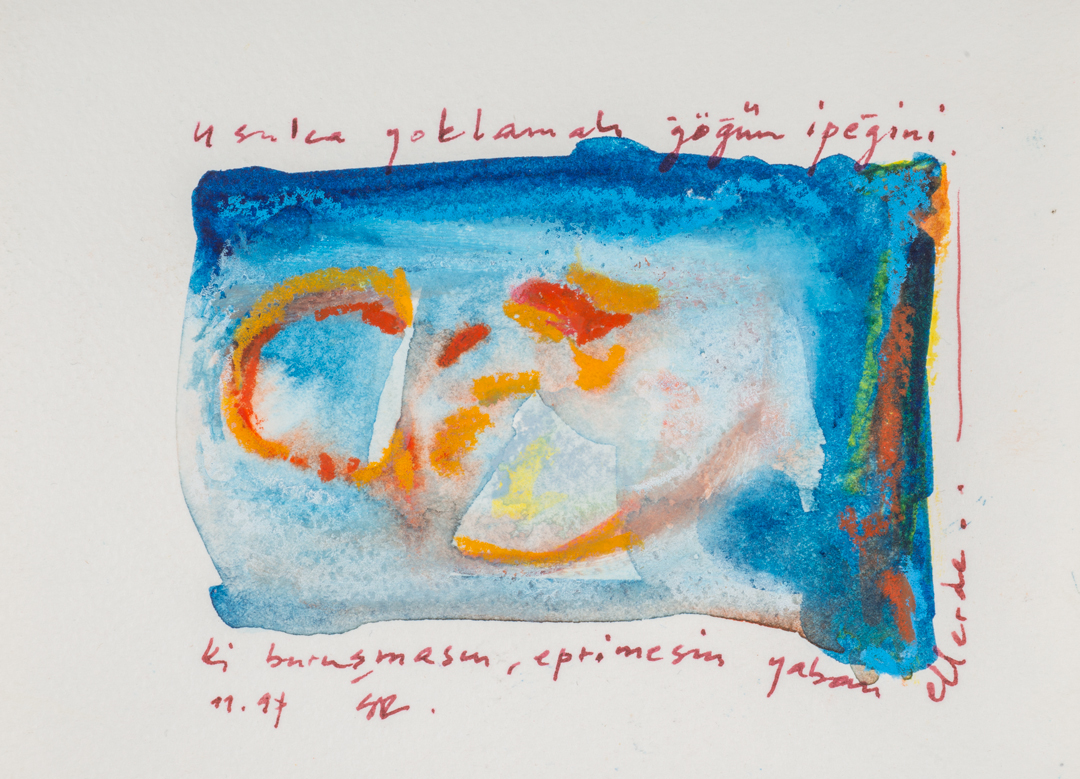 usulca yoklamak göğün ipeğini
ki buruşmasın, eprimesin yaban ellerde...
11.97